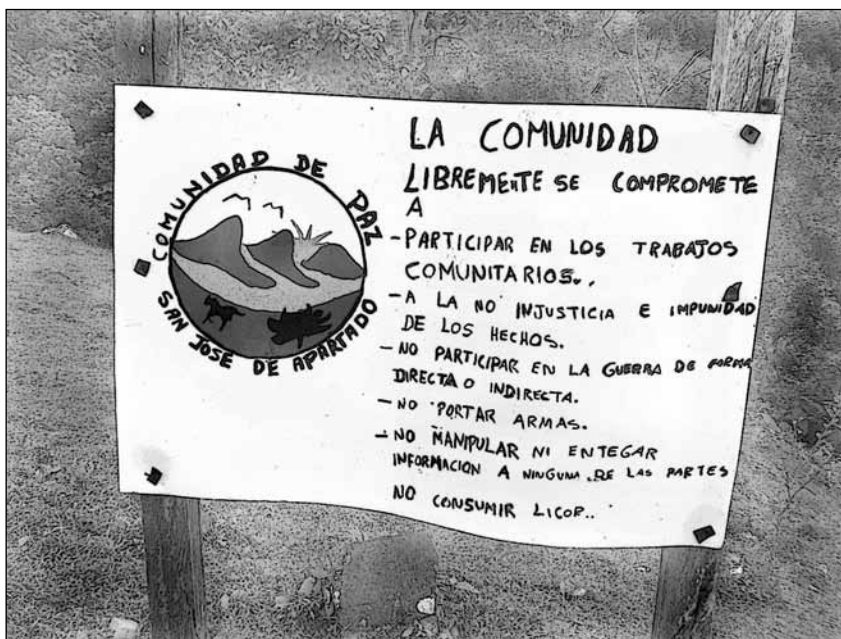 COMUNIDAD DE PAZ
SAN JOSÉ DE APARTADO
LA COMUNIDAD
LIBREMENTE SE COMPROMETE
A
-PARTICIPAR EN LOS TRABAJOS
COMUNITARIOS..
-A LA NO INJUSTICIA E IMPUNIDAD
DE LOS HECHOS.
-NO PARTICIPAR EN LA GUERRA DE FORMA
DIRECTA O INDIRECTA.
-NO PORTAR ARMAS.
-NO MANIPULAR NI ENTEGAR
INFORMACION A NINGUNA DE LAS PARTES
NO CONSUMIR LICOR..